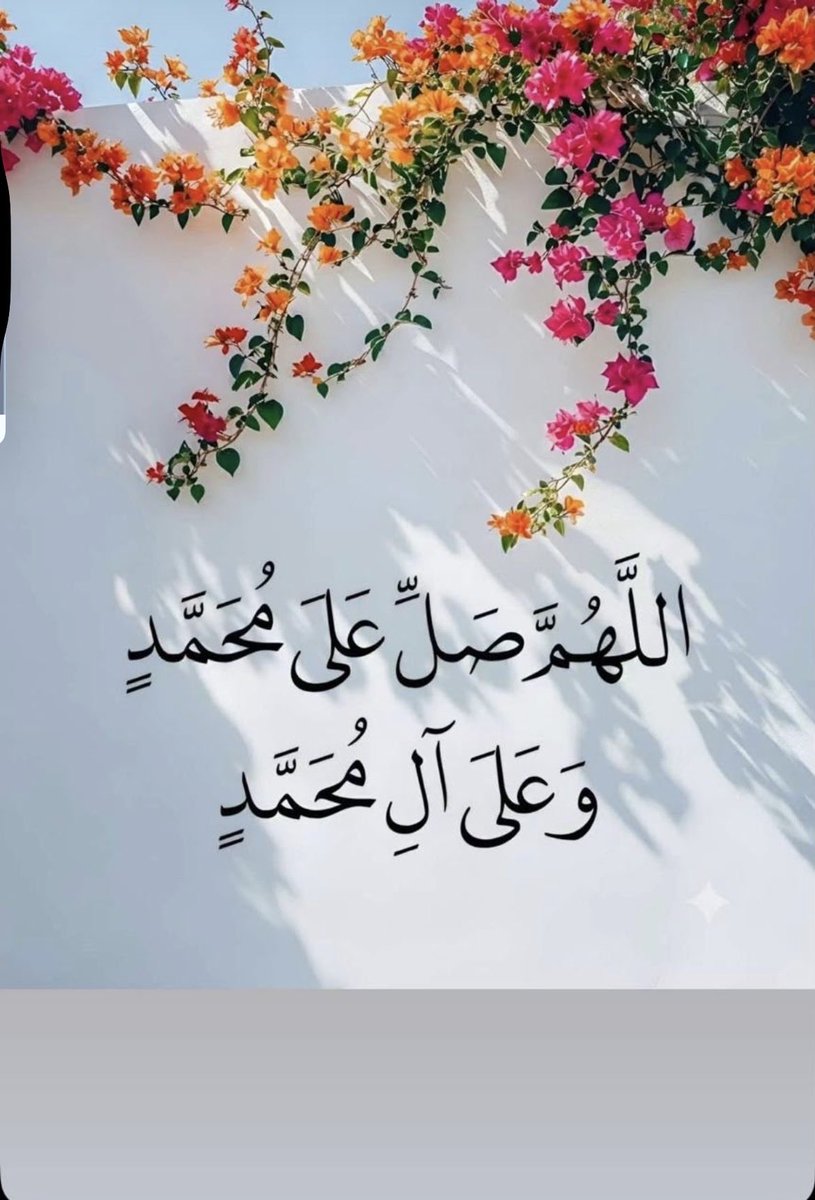 اللَّهُمَّ صَلِّ عَلَىَ مُحَمَّدٍ
وَعَلَىَ آلِ مُحَمَّدٍ